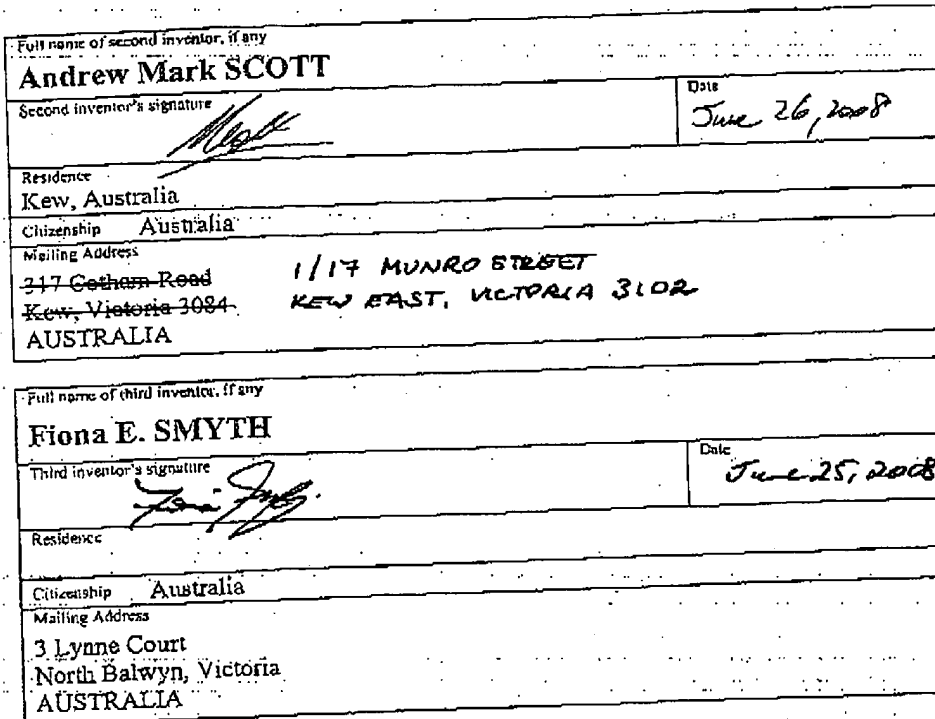 Full name of second inventor, if any
Andrew Mark SCOTT
Second inventor's signature
Date
June 26, 2008
Residence
Kew, Australia
Citizenship Australia
Mailing Address
317 Cotham Road
Kew, Victoria 3084
1/17 MUNRO STREET
KEW EAST, VICTORIA 3102
AUSTRALIA
Full name of third inventor, if any
Fiona E. SMYTH
Third inventor's signature
Date
June 25, 2008
Residence
Citizenship Australia
Mailing Address
3 Lynne Court
North Balwyn, Victoria
AUSTRALIA